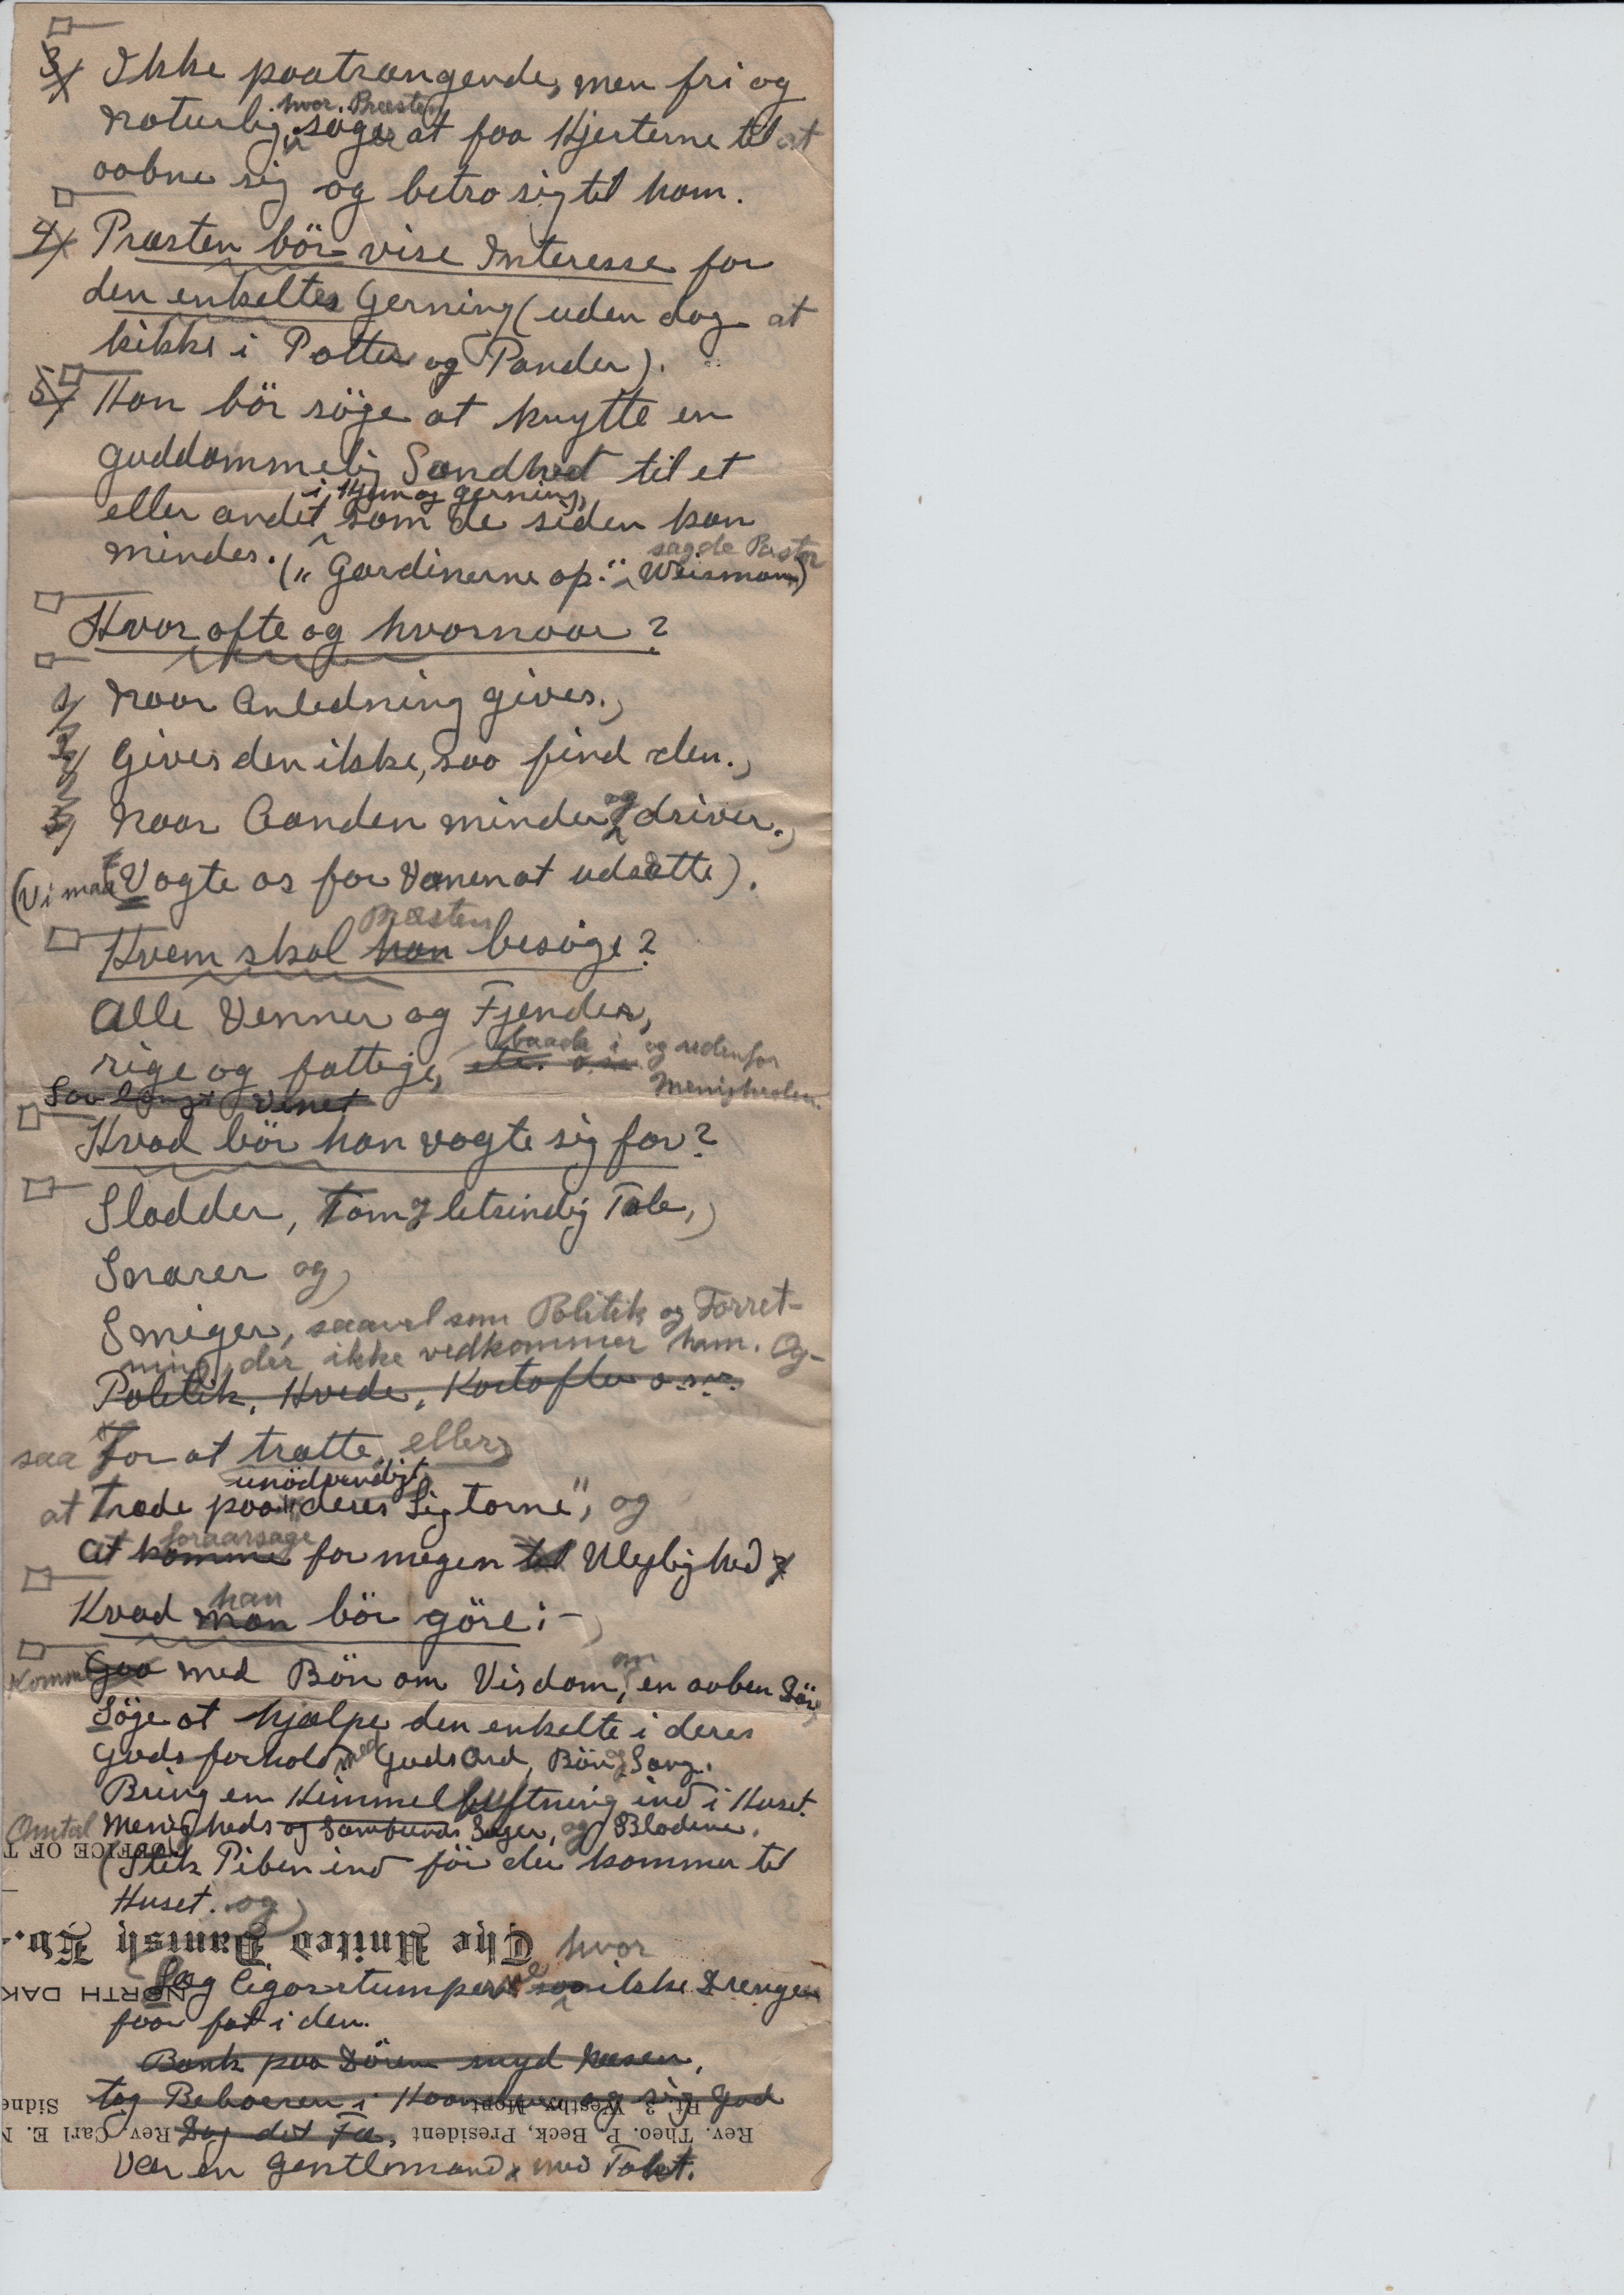 3) Ikke paatrængende, men fri og
hvor Præsten
naturlig, søger at faa Hjerterne til at
aabne sig og betro sig til ham.
4) Præsten bör vise Interesse for
den enkeltes Gerning (uden dog at
kikke i Potter og Pander).
5) Han bör söge at knytte en
guddommelig Sandhed til et
i Hjem og Gerning,
eller andet som de siden kan
sagde Pastor
mindes. („Gardinerne op." Weismann)
Hvor ofte og hvornaar?
1) Naar Anledning gives.
2) Gives den ikke, saa find den.
3) Naar Aanden minder og driver.
(Vi maa Vogte os for Vanen at udsætte).
Præsten
Hvem skal han besöge?
Alle Venner og Fjender,
baade i og udenfor
rige og fattige, etc. o.s.v. Menigheden.
Saa langt
Hvad bör han vogte sig for?
Sladder, Tom og letsindig Tale,
Snarer og
Smiger, saavel som Politik og Forret-
ning, der ikke vedkommer ham. Og-
Politik, Hvede, Kartofler o.s.v.
saa For at trætte, eller
unödvendigt
at Træde paa „deres Ligtorne", og
foraarsage
At komme for megen til Ulejlighed
han
Hvad man bör göre:-
om
Komme Gaa med Bön om Visdom, en aaben Dör,
Söge at hjælpe den enkelte i deres
Gudsforhold med Guds Ord, Bön og Sang.
Bring en Himmelluftning ind i Huset.
Omtal Menigheds og Samfunds Sager, og Bladene.
OFFICE OF T
(Stik Piben ind för du kommer til
Huset. og
The United Danish Ev.
hvor
NORTH DAK
Læg Cigarstumperne saa ikke Drengen
faar fat i den.
Bank paa Dören snyd Næsen,
tag Beboeren i Haanden og sig God
Rt. 3, Westby, Mont. Sidne
Dag det Fæ,
Rev. Theo. P. Beck, President, Rev. Carl E. N
Vær en Gentlemand, med Takt.